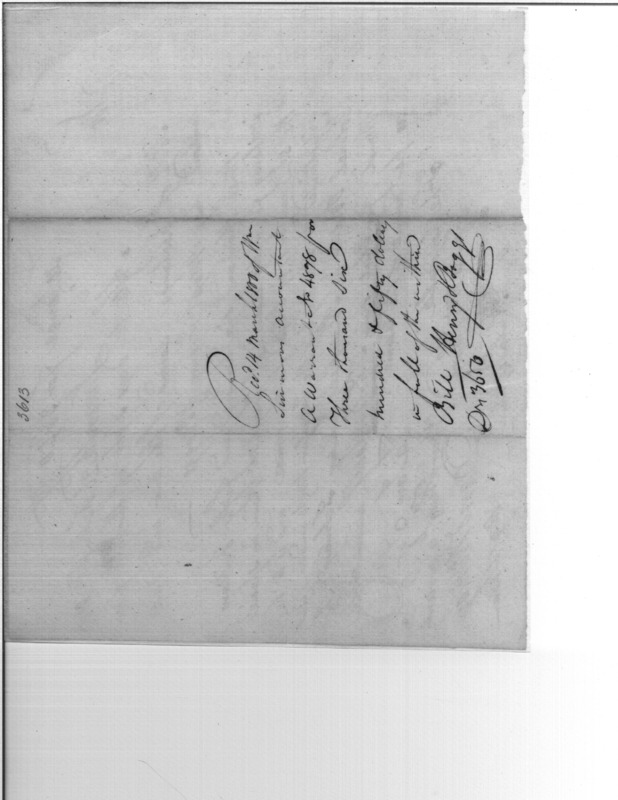 3613
Recd. 14 March 1800 of Wm
Simmons accountant
a Warrant No 4878 for
Three thousand six
hundred & fifty dollars
in full of the within
Bill Henry
Drs 3650